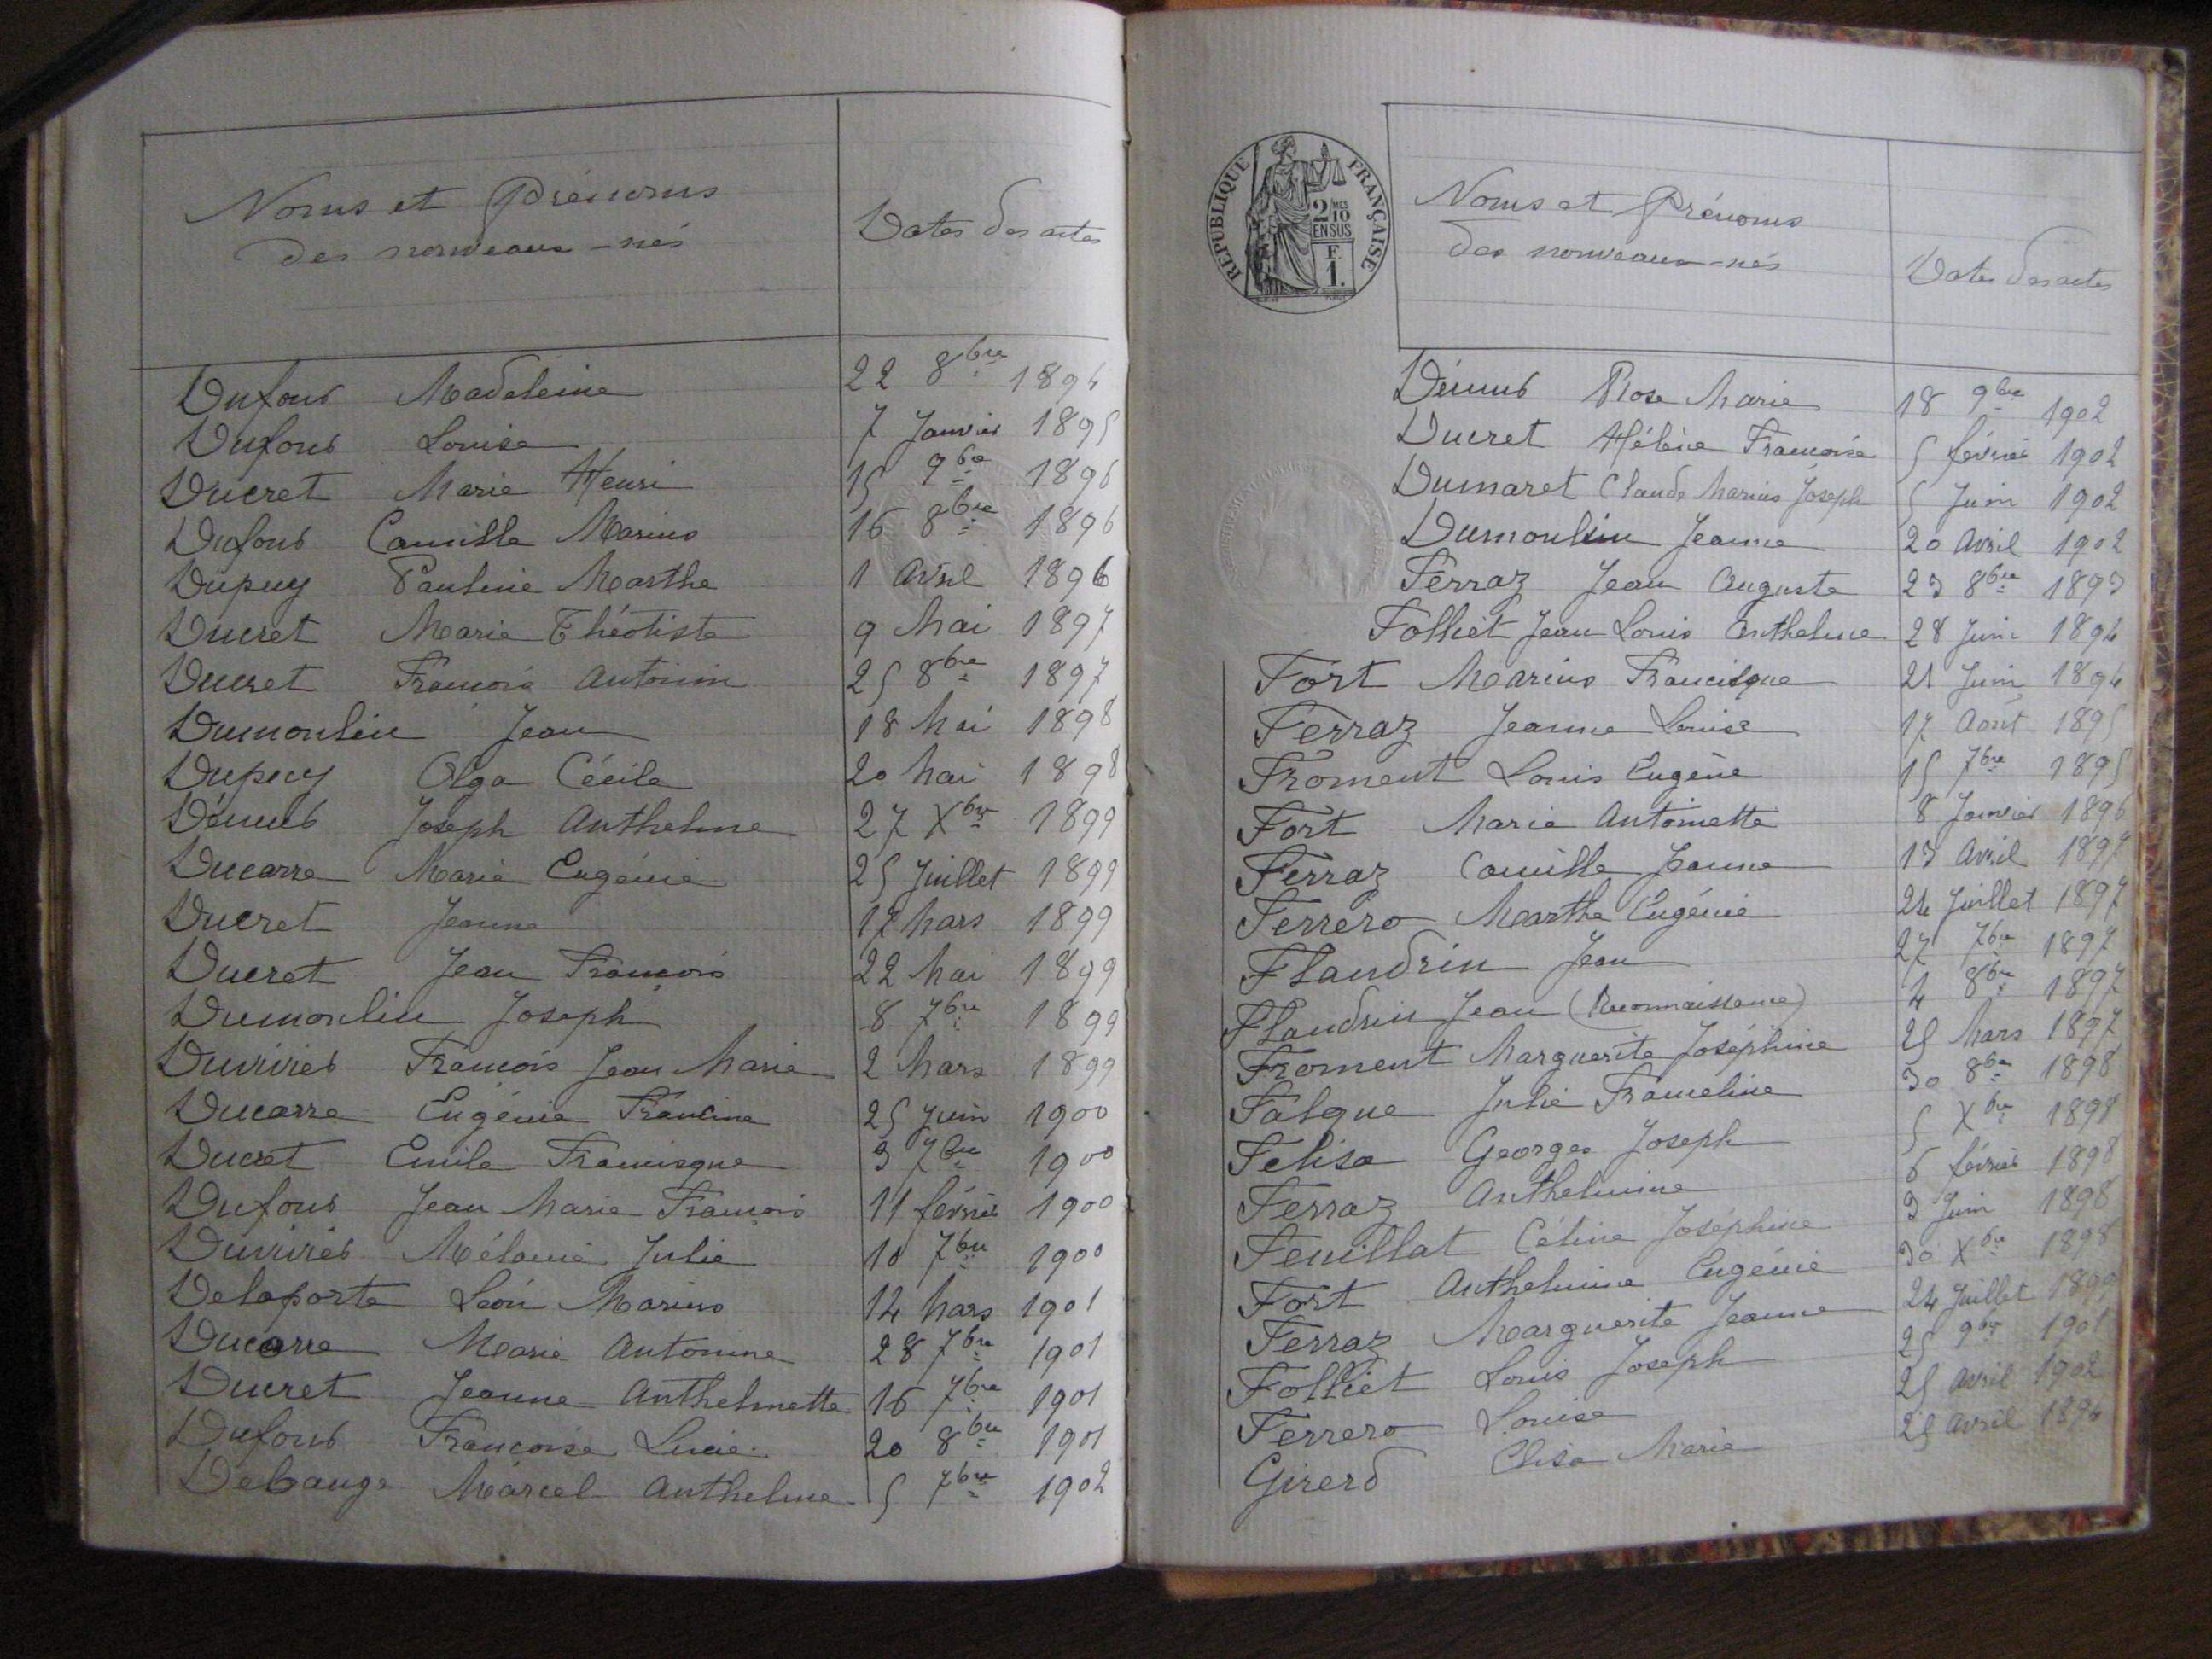 Noms et Prénoms
des nouveaux-nés
Dates des actes
Dufour Madeleine 22 8bre 1894
Dufour Louise 7 Janvier 1895
Ducret Marie Henri 15 9bre 1896
Dufour Camille Marius 16 8bre 1896
Dupuy Pauline Marthe 1 Avril 1896
Ducret Marie Théotiste 9 Mai 1897
Ducret François Antonin 25 8bre 1897
Dumoulin Jean 18 Mai 1898
Dupuy Olga Cécile 20 Mai 1898
Démur Joseph Anthelme 27 Xbre 1899
Ducarre Marie Eugénie 25 Juillet 1899
Ducret Jeanne 12 Mars 1899
Ducret Jean François 22 Mai 1899
Dumoulin Joseph 8 7bre 1899
Duvivier François Jean Marie 2 Mars 1899
Ducarre Eugénie Francine 25 Juin 1900
Ducret Emile Francisque 3 7bre 1900
Dufour Jean Marie François 11 février 1900
Duvivier Mélanie Julie 10 7bre 1900
Delaporte Léon Marius 14 Mars 1901
Ducarre Marie Antonine 28 7bre 1901
Ducret Jeanne Anthelmette 16 7bre 1901
Dufour Françoise Lucie 20 8bre 1901
Debauge Marcel Anthelme 5 7bre 1902
RÉPUBLIQUE FRANÇAISE
2 MES
10
EN SUS
F.
1.
Noms et Prénoms
des nouveaux-nés
Dates des actes
Démur Rose Marie 18 9bre 1902
Ducret Hélène Françoise 5 février 1902
Dumaret Claude Marius Joseph 5 Juin 1902
Dumoulin Jeanne 20 Avril 1902
Ferraz Jean Auguste 23 8bre 1893
Folliet Jean Louis Anthelme 28 Juin 1894
Fort Marius Francisque 21 Juin 1894
Ferraz Jeanne Louise 17 Août 1895
Froment Louis Eugène 15 7bre 1895
Fort Marie Antoinette 8 Janvier 1896
Ferraz Camille Jeanne 13 Avril 1897
Ferrero Marthe Eugénie 24 Juillet 1897
Flandrin Jean 27 7bre 1897
Flandrin Jean (Reconnaissance) 4 8bre 1897
Froment Marguerite Joséphine 25 Mars 1897
Falque Julie Franceline 30 8bre 1898
Felisa Georges Joseph 5 Xbre 1898
Ferraz Anthelmine 6 février 1898
Feuillat Céline Joséphine 3 Juin 1898
Fort Anthelmine Eugénie 30 Xbre 1898
Ferraz Marguerite Jeanne 24 Juillet 1899
Folliet Louis Joseph 25 9bre 1901
Ferrero Louise 25 Avril 1902
Girerd Elisa Marie 25 Avril 1894